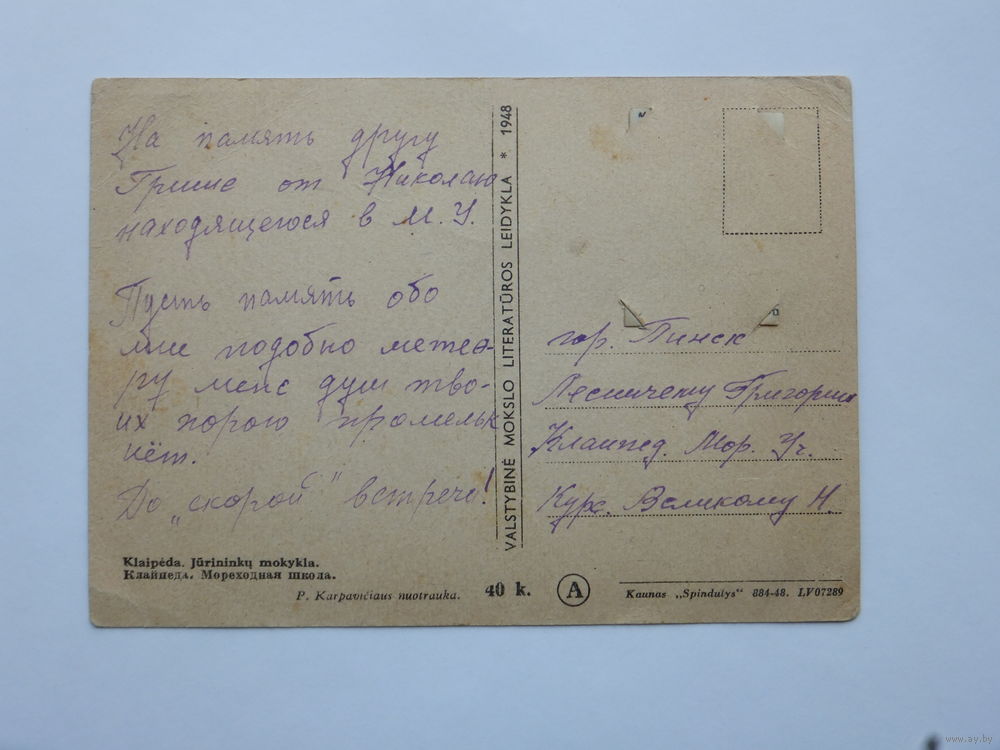 На память другу
Грише от Николаю
находящегося в М. У.
Пусть память обо
мне подобно метео-
ру меж душ тво-
их порою промельк
нёт.
До „скорой" встречи!
VALSTYBINĖ MOKSLO LITERATŪROS LEIDYKLA * 1948
гор. Пинск
Лесничему Григорию
Клайпед. Мор. Уч.
Курс. Великому Н.
Klaipėda. Jūrininkų mokykla.
Клайпеда. Мореходная школа.
P. Karpavičiaus nuotrauka.
40 k.
A
Kaunas „Spindulys" 884-48. LV07289
www.ay.by